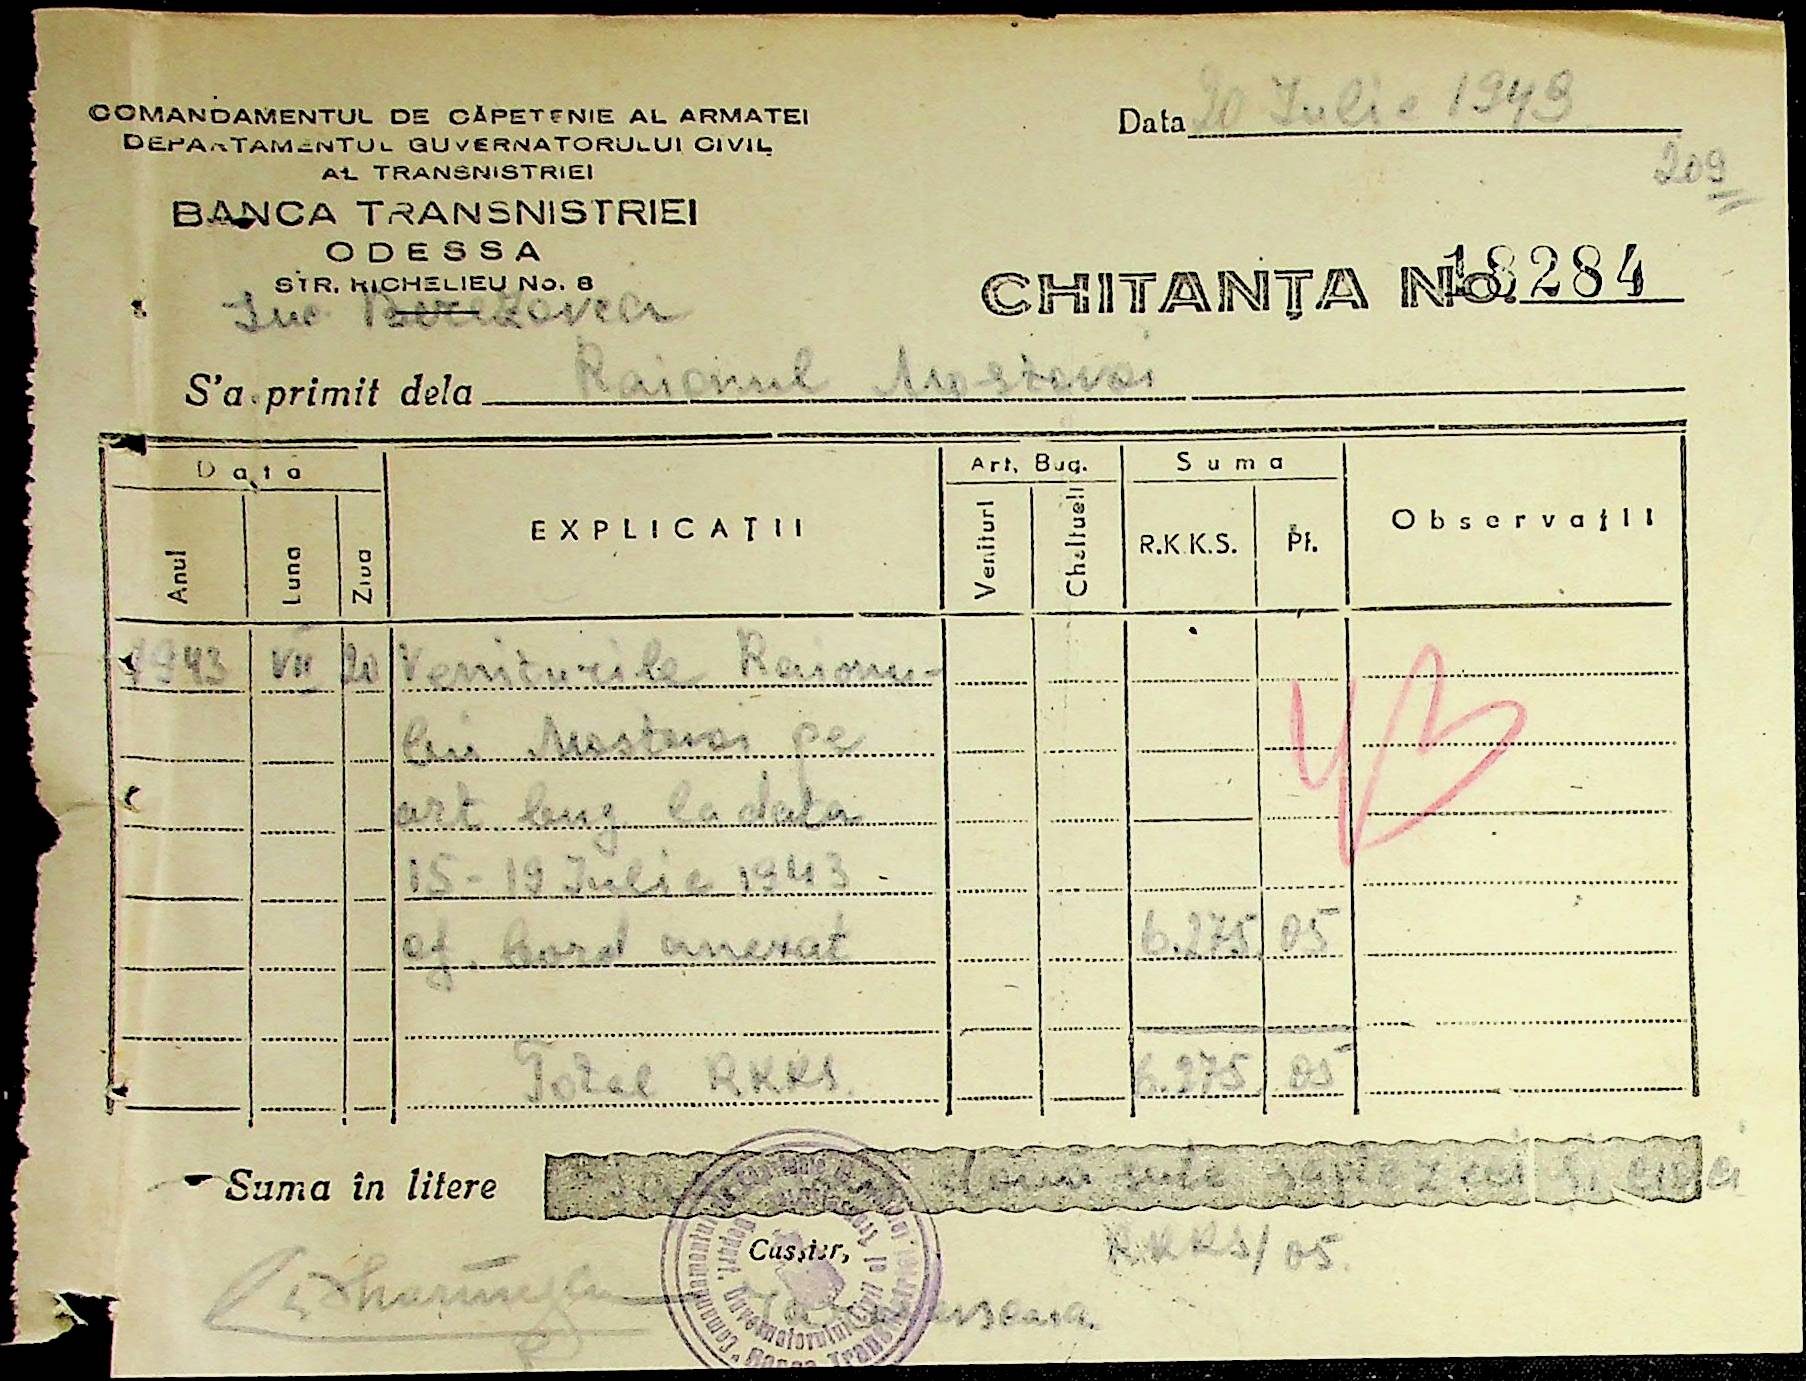 COMANDAMENTUL DE CĂPETENIE AL ARMATEI
DEPARTAMENTUL GUVERNATORULUI CIVIL
AL TRANSNISTRIEI
BANCA TRANSNISTRIEI
ODESSA
STR. RICHELIEU No. 8
Berezovca
Data 20 Iulie 1943
209
CHITANȚA No. 18284
S'a primit dela Raionul Mostovoi
Data
Art. Bug.
Suma
EXPLICAȚII
Observații
Anul Luna Ziua
Venituri Cheltueli
R.K.K.S. Pf.
1943 VII 20 Veniturile Raionu-
lui Mostovoi pe
art bug la data
15-19 Iulie 1943
cf. bord anexat 6.275 05
Total RKKS. 6.275 05
Suma în litere două sute șaptezeci și cinci
RKKS/05.
Cassier,